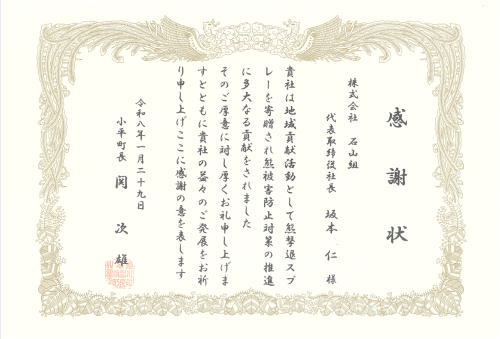 感謝状
株式会社 石山組
代表取締役社長 坂本 仁 様
貴社は地域貢献活動として熊撃退スプ
レーを寄贈され熊被害防止対策の推進
に多大なる貢献をされました
そのご厚意に対し厚くお礼申し上げま
すとともに貴社の益々のご発展をお祈
り申し上げここに感謝の意を表します
令和八年一月二十九日
小平町長 関 次雄